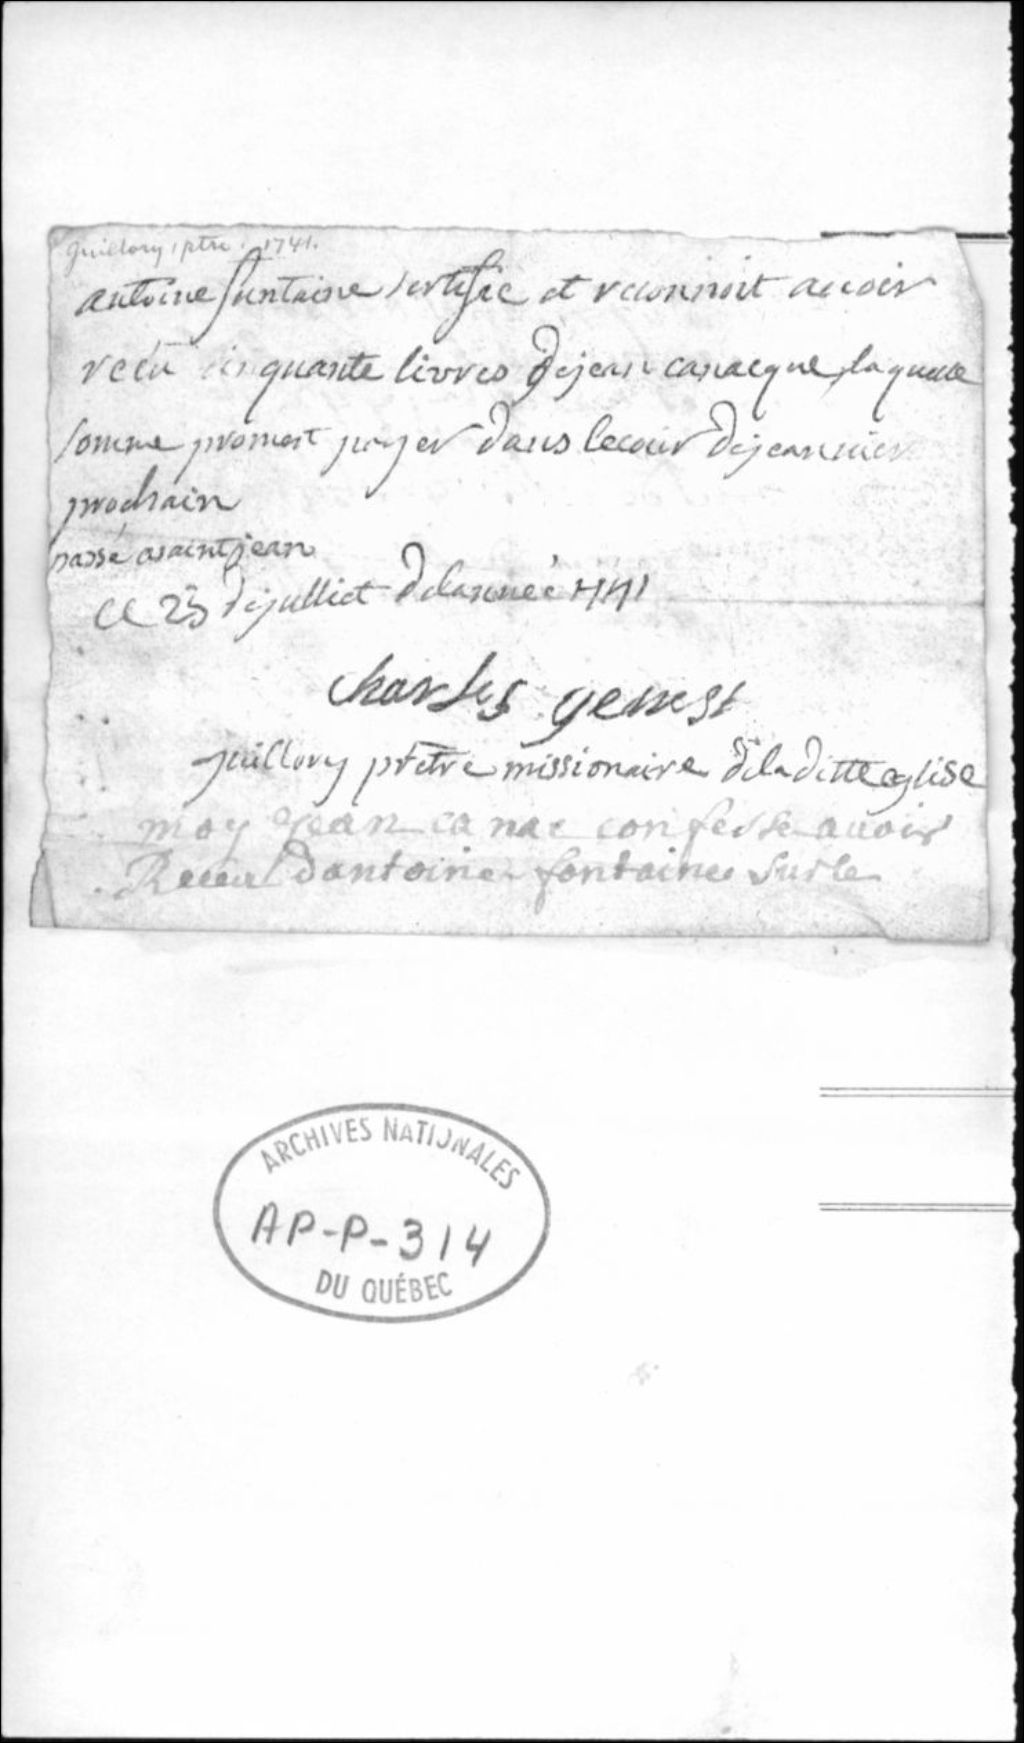 Guillory, ptre. 1741.
antoine funtaine sertifie et reconnoit auoir
recu cinquante livres dejean canacque, laquelle
somme promest payer dans lecour dejeanuier
prochain
passé asaint jean
ce 23 dejulliet delannée 1741
charles genest
guillory prêtre missionaire deladitte eglise
moy jean canac confesse auoir
Receu dantoine fontaine sur le
ARCHIVES NATIONALES
AP-P-314
DU QUÉBEC